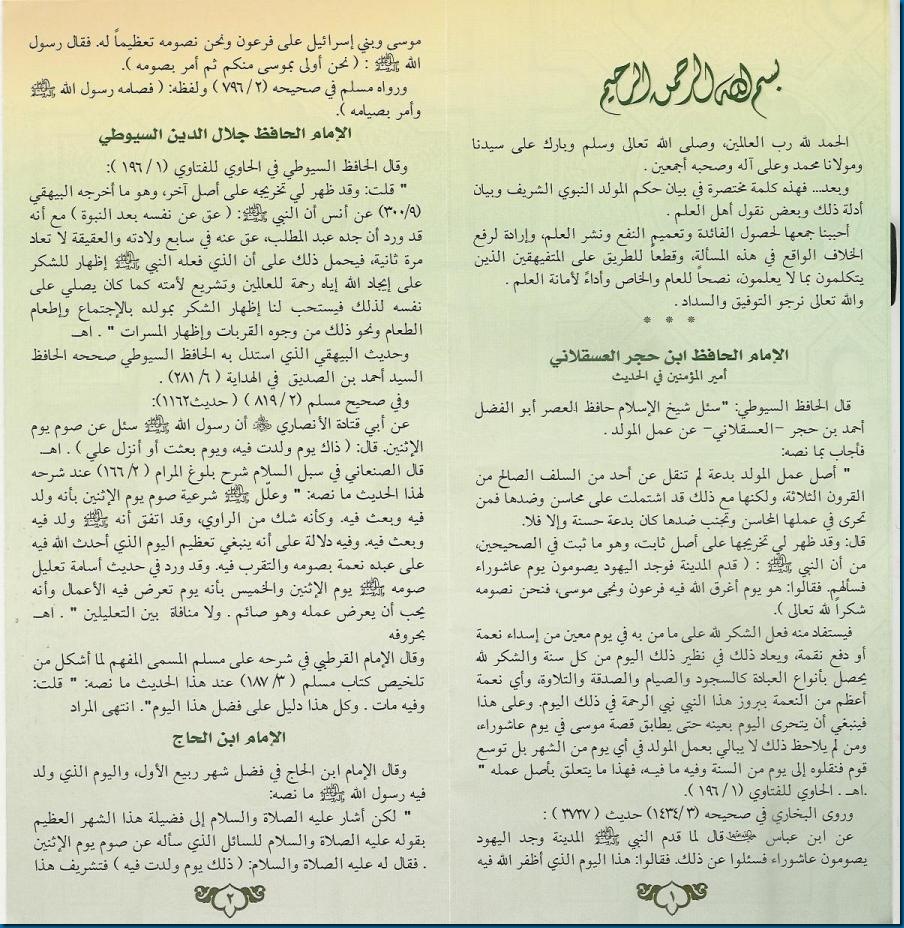 بسم الله الرحمن الرحيم
الحمد لله رب العالمين، وصلى الله تعالى وسلم وبارك على سيدنا
ومولانا محمد وعلى آله وصحبه أجمعين .
وبعد... فهذه كلمة مختصرة في بيان حكم المولد النبوي الشريف وبيان
أدلة ذلك وبعض نقول أهل العلم .
أحببنا جمعها لحصول الفائدة وتعميم النفع ونشر العلم، وإرادة لرفع
الخلاف الواقع في هذه المسألة، وقطعاً للطريق على المتفيهقين الذين
يتكلمون بما لا يعلمون، نصحاً للعام والخاص وأداءً لأمانة العلم .
والله تعالى نرجو التوفيق والسداد .
* * *
الإمام الحافظ ابن حجر العسقلاني
أمير المؤمنين في الحديث
قال الحافظ السيوطي: "سئل شيخ الإسلام حافظ العصر أبو الفضل
أحمد بن حجر -العسقلاني- عن عمل المولد .
فأجاب بما نصه:
" أصل عمل المولد بدعة لم تنقل عن أحد من السلف الصالح من
القرون الثلاثة، ولكنها مع ذلك قد اشتملت على محاسن وضدها فمن
تحرى في عملها المحاسن وتجنب ضدها كان بدعة حسنة وإلا فلا.
قال: وقد ظهر لي تخريجها على أصل ثابت، وهو ما ثبت في الصحيحين،
من أن النبي ﷺ : ( قدم المدينة فوجد اليهود يصومون يوم عاشوراء
فسألهم. فقالوا: هو يوم أغرق الله فيه فرعون ونجى موسى، فنحن نصومه
شكراً لله تعالى ).
فيستفاد منه فعل الشكر لله على ما من به في يوم معين من إسداء نعمة
أو دفع نقمة، ويعاد ذلك في نظير ذلك اليوم من كل سنة والشكر لله
يحصل بأنواع العبادة كالسجود والصيام والصدقة والتلاوة، وأي نعمة
أعظم من النعمة ببروز هذا النبي نبي الرحمة في ذلك اليوم. وعلى هذا
فينبغي أن يتحرى اليوم بعينه حتى يطابق قصة موسى في يوم عاشوراء،
ومن لم يلاحظ ذلك لا يبالي بعمل المولد في أي يوم من الشهر بل توسع
قوم فنقلوه إلى يوم من السنة وفيه ما فيه، فهذا ما يتعلق بأصل عمله "
.اهـ . الحاوي للفتاوي (١/ ١٩٦).
وروى البخاري في صحيحه (٣/ ١٤٣٤) حديث ( ٣٧٢٧ ) :
عن ابن عباس رضي الله عنهما قال لما قدم النبي ﷺ المدينة وجد اليهود
يصومون عاشوراء فسئلوا عن ذلك. فقالوا: هذا اليوم الذي أظفر الله فيه
١
موسى وبني إسرائيل على فرعون ونحن نصومه تعظيماً له. فقال رسول
الله ﷺ : ( نحن أولى بموسى منكم ثم أمر بصومه ).
ورواه مسلم في صحيحه (٢/ ٧٩٦ ) ولفظه: ( فصامه رسول الله ﷺ
وأمر بصيامه ).
الإمام الحافظ جلال الدين السيوطي
وقال الحافظ السيوطي في الحاوي للفتاوي (١/ ١٩٦ ):
" قلت: وقد ظهر لي تخريجه على أصل آخر، وهو ما أخرجه البيهقي
(٩/ ٣٠٠) عن أنس أن النبي ﷺ: ( عق عن نفسه بعد النبوة ) مع أنه
قد ورد أن جده عبد المطلب، عق عنه في سابع ولادته والعقيقة لا تعاد
مرة ثانية، فيحمل ذلك على أن الذي فعله النبي ﷺ إظهار للشكر
على إيجاد الله إياه رحمة للعالمين وتشريع لأمته كما كان يصلي على
نفسه لذلك فيستحب لنا إظهار الشكر بمولده بالإجتماع وإطعام
الطعام ونحو ذلك من وجوه القربات وإظهار المسرات " . اهـ
وحديث البيهقي الذي استدل به الحافظ السيوطي صححه الحافظ
السيد أحمد بن الصديق في الهداية (٦/ ٢٨١) .
وفي صحيح مسلم (٢/ ٨١٩ ) ( حديث١١٦٢):
عن أبي قتادة الأنصاري رضي الله عنه أن رسول الله ﷺ سئل عن صوم يوم
الإثنين. قال: ( ذاك يوم ولدت فيه، ويوم بعثت أو أنزل علي ) . اهـ
قال الصنعاني في سبل السلام شرح بلوغ المرام (٢/ ١٦٦) عند شرحه
لهذا الحديث ما نصه: " وعلّل ﷺ شرعية صوم يوم الإثنين بأنه ولد
فيه وبعث فيه. وكأنه شك من الراوي، وقد اتفق أنه ﷺ ولد فيه
وبعث فيه. وفيه دلالة على أنه ينبغي تعظيم اليوم الذي أحدث الله فيه
على عبده نعمة بصومه والتقرب فيه. وقد ورد في حديث أسامة تعليل
صومه ﷺ يوم الإثنين والخميس بأنه يوم تعرض فيه الأعمال وأنه
يحب أن يعرض عمله وهو صائم . ولا منافاة بين التعليلين " . اهـ
بحروفه
وقال الإمام القرطبي في شرحه على مسلم المسمى المفهم لما أشكل من
تلخيص كتاب مسلم (٣/ ١٨٧) عند هذا الحديث ما نصه: " قلت:
وفيه مات . وكل هذا دليل على فضل هذا اليوم". انتهى المراد
الإمام ابن الحاج
وقال الإمام ابن الحاج في فضل شهر ربيع الأول، واليوم الذي ولد
فيه رسول الله ﷺ ما نصه:
" لكن أشار عليه الصلاة والسلام إلى فضيلة هذا الشهر العظيم
بقوله عليه الصلاة والسلام للسائل الذي سأله عن صوم يوم الإثنين
. فقال له عليه الصلاة والسلام: ( ذلك يوم ولدت فيه ) فتشريف هذا
٢